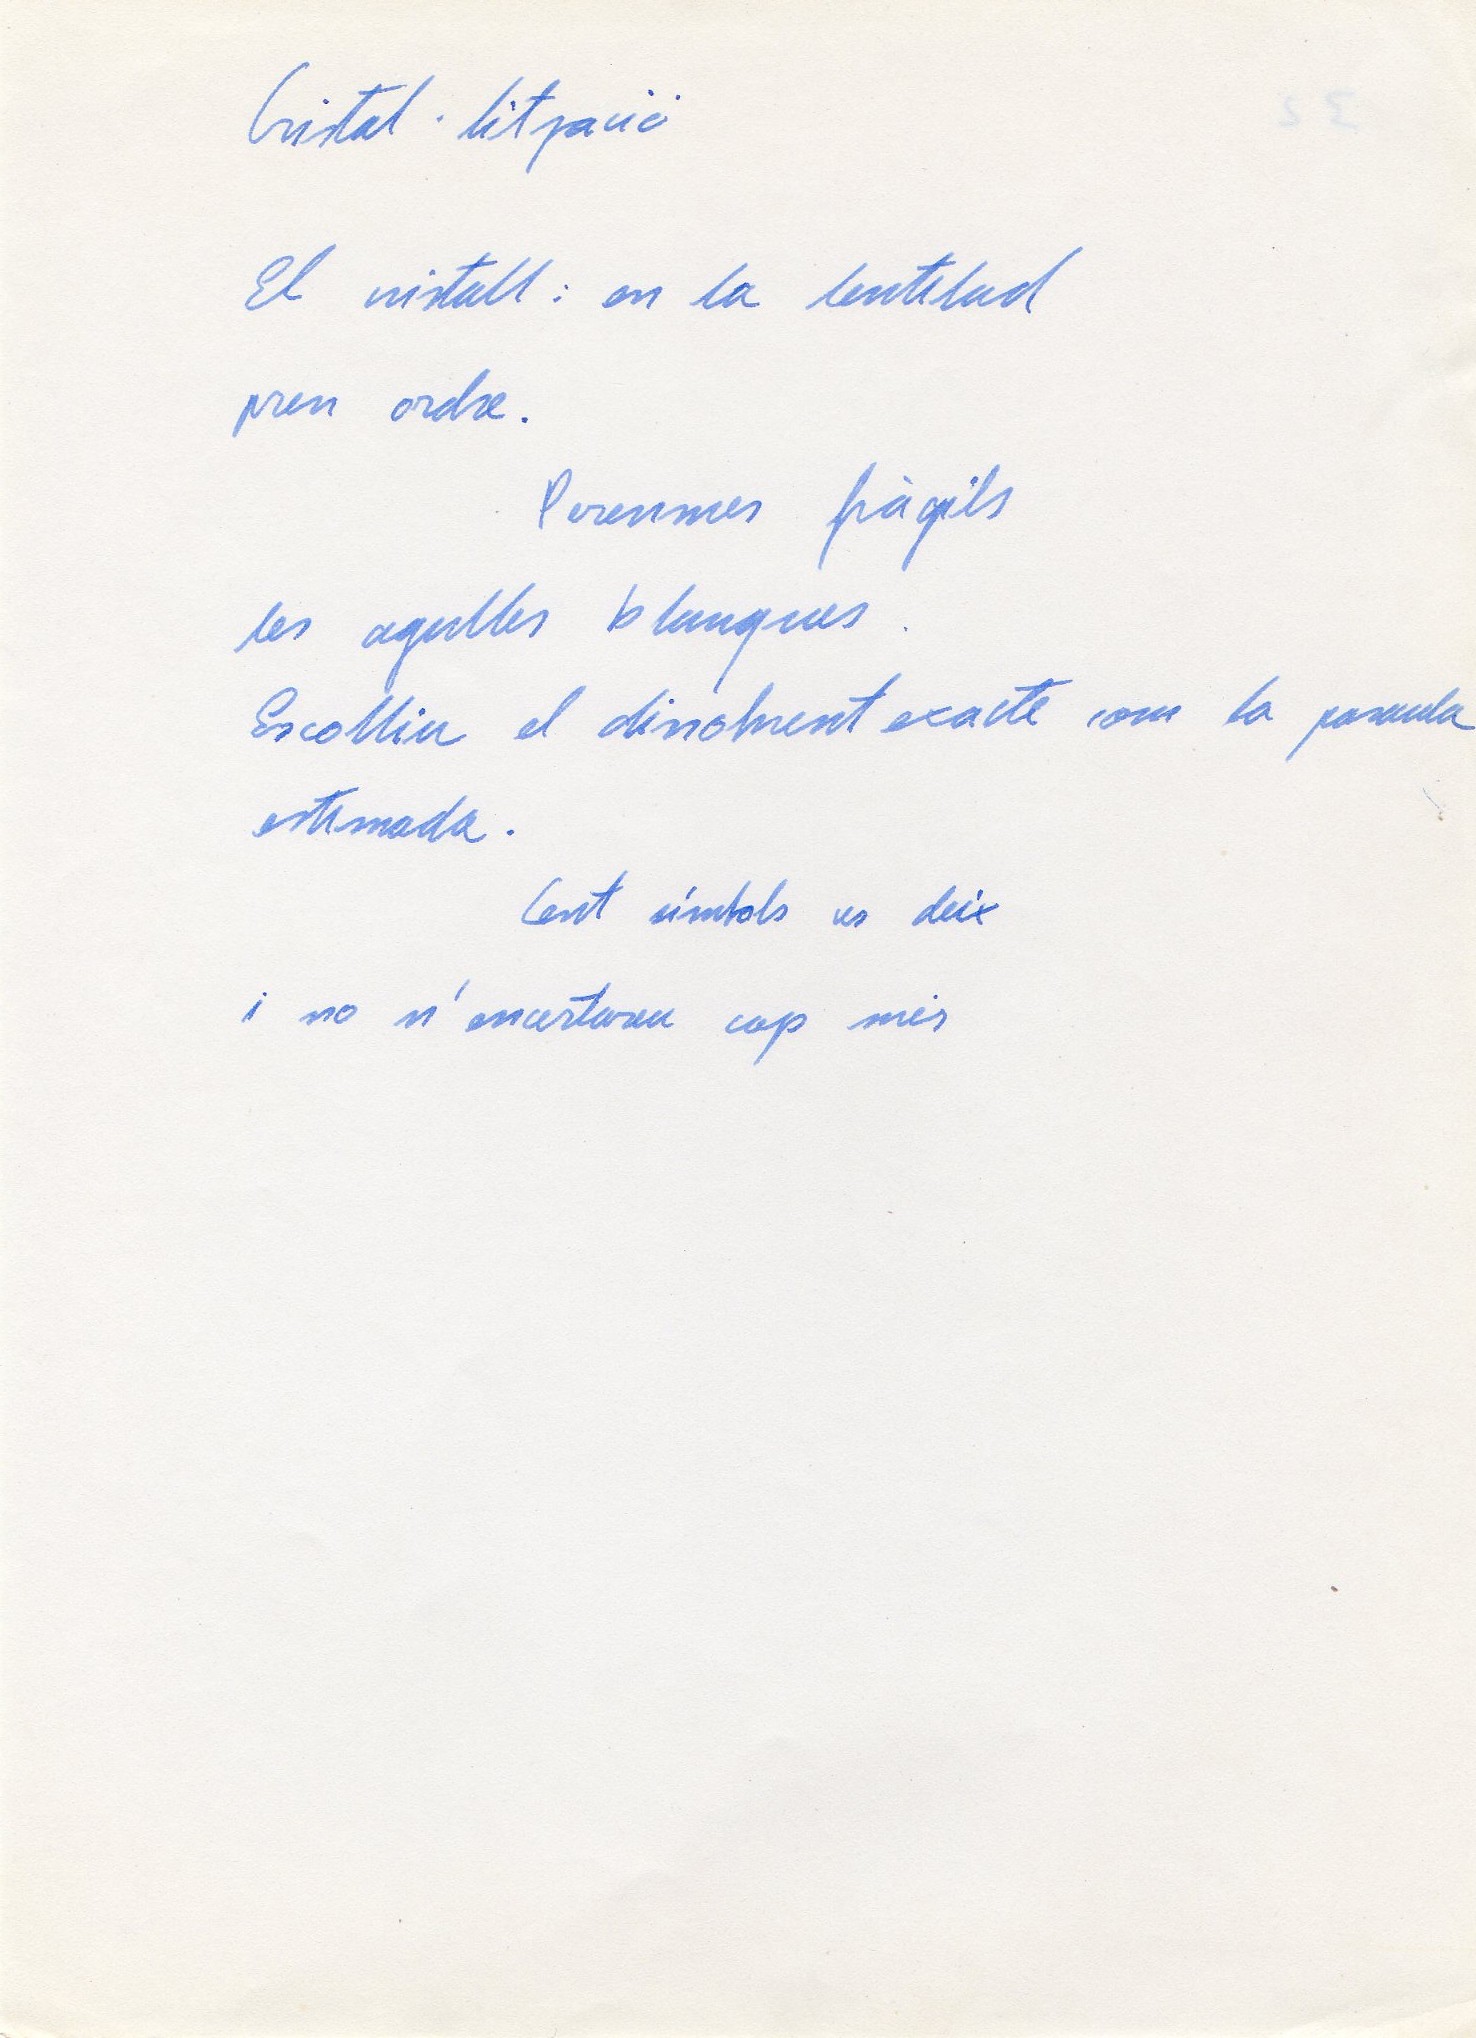 Cristal·lització
El cristall: en la lentitud
pren ordre.
Perennes fràgils
les agulles blanques.
Escolliu el dissolvent exacte com la paraula
estimada.
Cent símbols us deix
i no n'encertareu cap més